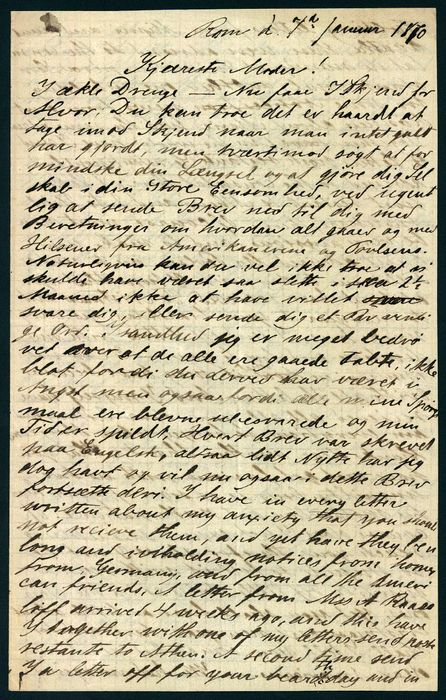 Rom d. 7d Januar 1870
Kjæreste Moder!
I ækle Drenge — Nu faae I Skjend for
Alvor. Du kan troe det er haardt at
tage imod Skjend naar man intet galt
har gjordt, men tværtimod søgt at for
mindske din Længsel og at gjøre dig Sel
skab i din store Eensomhed, ved uegent
lig at sende Brev ned til dig med
Beretninger om hvordan alt gaaer og med
Hilsener fra Amerikanerne og
Naturligviis kan du vel ikke troe at vi
skulde have været saa slette i 2½
Maaned ikke at have villet
svare dig, eller sende dig et Par venli
ge Ord. I Sandhed jeg er meget bedrø
vet over at de alle ere gaaede tabte, ikke
blot fordi du derved har været i
Angst men ogsaa fordi alle mine Spørgs
maal ere blevne ubesvarede og min
Tid er spildt. Hvert Brev var skrevet
paa Engelsk, altsaa lidt Nytte har jeg
dog havt og vil nu ogsaa i dette Brev
fortsætte deri. I have in every letter
written about my anxiety that you should
not recieve them, and yet have they been
long and inholding notices from home
from Germany, and from all the Ameri
can friends. A letter from Mss A
loff arrived 4 weeks ago, and this have
I together with one of my letters send poste
restante to Athen. A second time send
I a letter off for your day and in